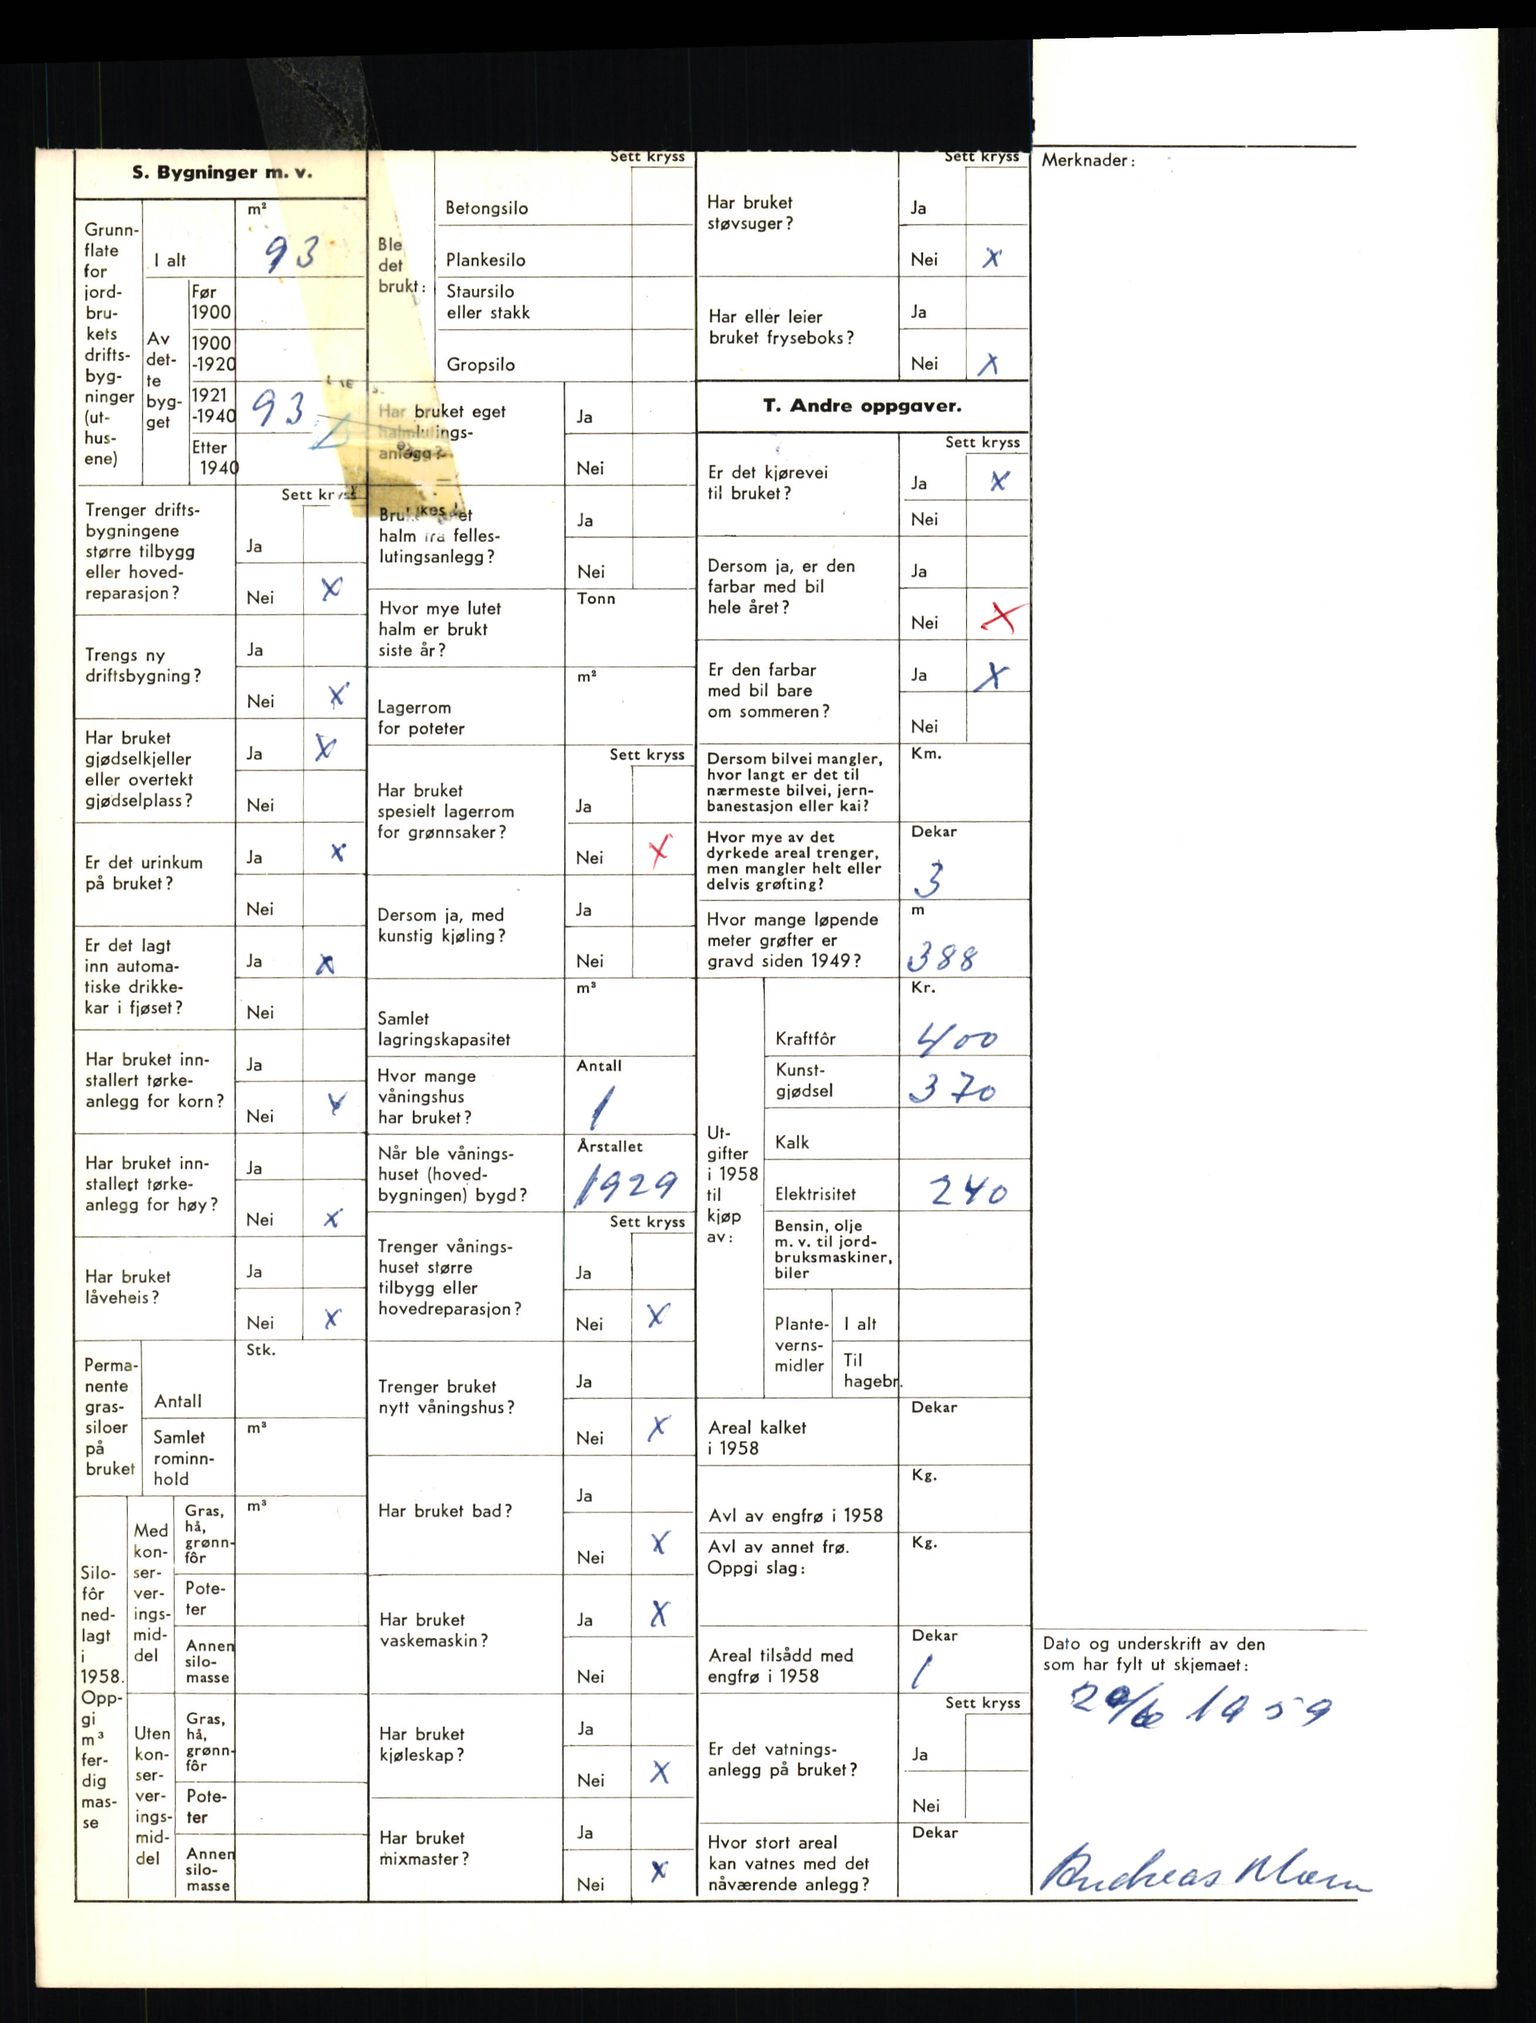 S. Bygninger m. v.
Grunn-
flate
for
jord-
bru-
kets
drifts-
byg-
ninger
(ut-
hus-
ene)
I alt
m²
93
Av
det-
te
byg-
get
Før
1900
1900
-1920
1921
-1940
93
Etter
1940
Sett kryss
Trenger drifts-
bygningene
større tilbygg
eller hoved-
reparasjon?
Ja
Nei X
Trengs ny
driftsbygning?
Ja
Nei X
Har bruket
gjødselkjeller
eller overtekt
gjødselplass?
Ja X
Nei
Er det urinkum
på bruket?
Ja X
Nei
Er det lagt
inn automa-
tiske drikke-
kar i fjøset?
Ja X
Nei
Har bruket inn-
stallert tørke-
anlegg for korn?
Ja
Nei X
Har bruket inn-
stallert tørke-
anlegg for høy?
Ja
Nei X
Har bruket
låveheis?
Ja
Nei X
Perma-
nente
gras-
siloer
på
bruket
Antall
Stk.
Samlet
rominn-
hold
m³
Silo-
fôr
ned-
lagt
i
1958.
Opp-
gi
m³
fer-
dig
mas-
se
Med
kon-
ser-
ver-
ings-
mid-
del
Gras,
hå,
grønn-
fôr
m³
Pote-
ter
Annen
silo-
masse
Uten
kon-
ser-
ver-
ings-
mid-
del
Gras,
hå,
grønn-
fôr
Pote-
ter
Annen
silo-
masse
Ble
det
brukt:
Sett kryss
Betongsilo
Plankesilo
Staursilo
eller stakk
Gropsilo
Har bruket eget
halmlutings-
anlegg?
Ja
Nei
halm fra felles-
lutingsanlegg?
Ja
Nei
Hvor mye lutet
halm er brukt
siste år?
Tonn
Lagerrom
for poteter
m²
Sett kryss
Har bruket
spesielt lagerrom
for grønnsaker?
Ja
Nei X
Dersom ja, med
kunstig kjøling?
Ja
Nei
Samlet
lagringskapasitet
m³
Hvor mange
våningshus
har bruket?
Antall
1
Når ble vånings-
huset (hoved-
bygningen) bygd?
Årstallet
1929
Sett kryss
Trenger vånings-
huset større
tilbygg eller
hovedreparasjon?
Ja
Nei X
Trenger bruket
nytt våningshus?
Ja
Nei X
Har bruket bad?
Ja
Nei X
Har bruket
vaskemaskin?
Ja X
Nei
Har bruket
kjøleskap?
Ja
Nei X
Har bruket
mixmaster?
Ja
Nei X
Sett kryss
Har bruket
støvsuger?
Ja
Nei X
Har eller leier
bruket fryseboks?
Ja
Nei X
T. Andre oppgaver.
Sett kryss
Er det kjørevei
til bruket?
Ja X
Nei
Dersom ja, er den
farbar med bil
hele året?
Ja
Nei X
Er den farbar
med bil bare
om sommeren?
Ja X
Nei
Dersom bilvei mangler,
hvor langt er det til
nærmeste bilvei, jern-
banestasjon eller kai?
Km.
Hvor mye av det
dyrkede areal trenger,
men mangler helt eller
delvis grøfting?
Dekar
3
Hvor mange løpende
meter grøfter er
gravd siden 1949?
m
388
Ut-
gifter
i 1958
til
kjøp
av:
Kr.
Kraftfôr
400
Kunst-
gjødsel
370
Kalk
Elektrisitet
240
Bensin, olje
m. v. til jord-
bruksmaskiner,
biler
Plante-
verns-
midler
I alt
Til
hagebr.
Areal kalket
i 1958
Dekar
Avl av engfrø i 1958
Kg.
Avl av annet frø.
Oppgi slag:
Kg.
Areal tilsådd med
engfrø i 1958
Dekar
1
Sett kryss
Er det vatnings-
anlegg på bruket?
Ja
Nei
Hvor stort areal
kan vatnes med det
nåværende anlegg?
Dekar
Merknader:
Dato og underskrift av den
som har fylt ut skjemaet:
1959
Andreas